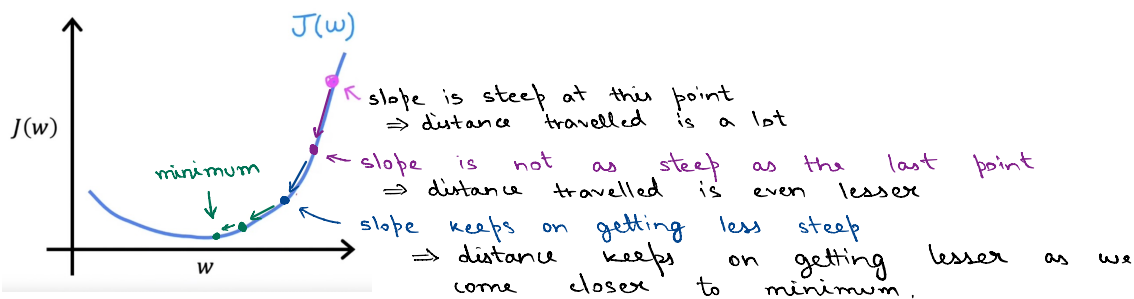 J(w)
J(w)
slope is steep at this point
⇒ distance travelled is a lot
minimum
slope is not as steep as the last point
⇒ distance travelled is even lesser
slope keeps on getting less steep
⇒ distance keeps on getting lesser as we
come closer to minimum.
w